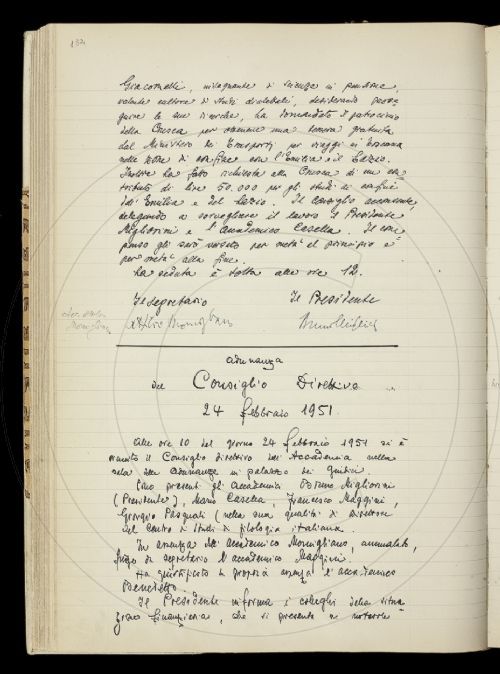 132
Giacomelli, insegnante di Scienze in pensione,
valente cultore di studi dialettali, desiderando prose-
guire le sue ricerche, ha domandato il patrocinio
della Crusca per ottenere una tessera gratuita
dal Ministero dei Trasporti per viaggi in Toscana
nelle zone di confine con l'Emilia e il Lazio.
Inoltre ha fatto richiesta alla Crusca di un con-
tributo di lire 50.000 per gli studi ai confini
dell'Emilia e del Lazio. Il Consiglio acconsente,
delegando a sorvegliare il lavoro il Presidente
Migliorini e l'Accademico Casella. Il com-
penso gli sarà versato per metà al principio e
per metà alla fine.
La seduta è tolta alle ore 12.
Il Segretario Il Presidente
Attilio Momigliano Bruno Migliorini
Momigliano
Adunanza
del Consiglio Direttivo
24 febbraio 1951.
Alle ore 10 del giorno 24 febbraio 1951 si è
riunito il Consiglio direttivo dell'Accademia nella
sala delle adunanze in palazzo dei Giudici.
Sono presenti gli accademici Bruno Migliorini
(Presidente), Mario Casella, Francesco Maggini,
Giorgio Pasquali (nella sua qualità di Direttore
del Centro di Studi di filologia italiana.
In assenza dell'accademico Momigliano, ammalato,
funge da segretario l'accademico Maggini
Ha giustificato la propria assenza l'accademico
Benedetto.
Il Presidente informa i colleghi della situa-
zione finanziaria, che si presenta